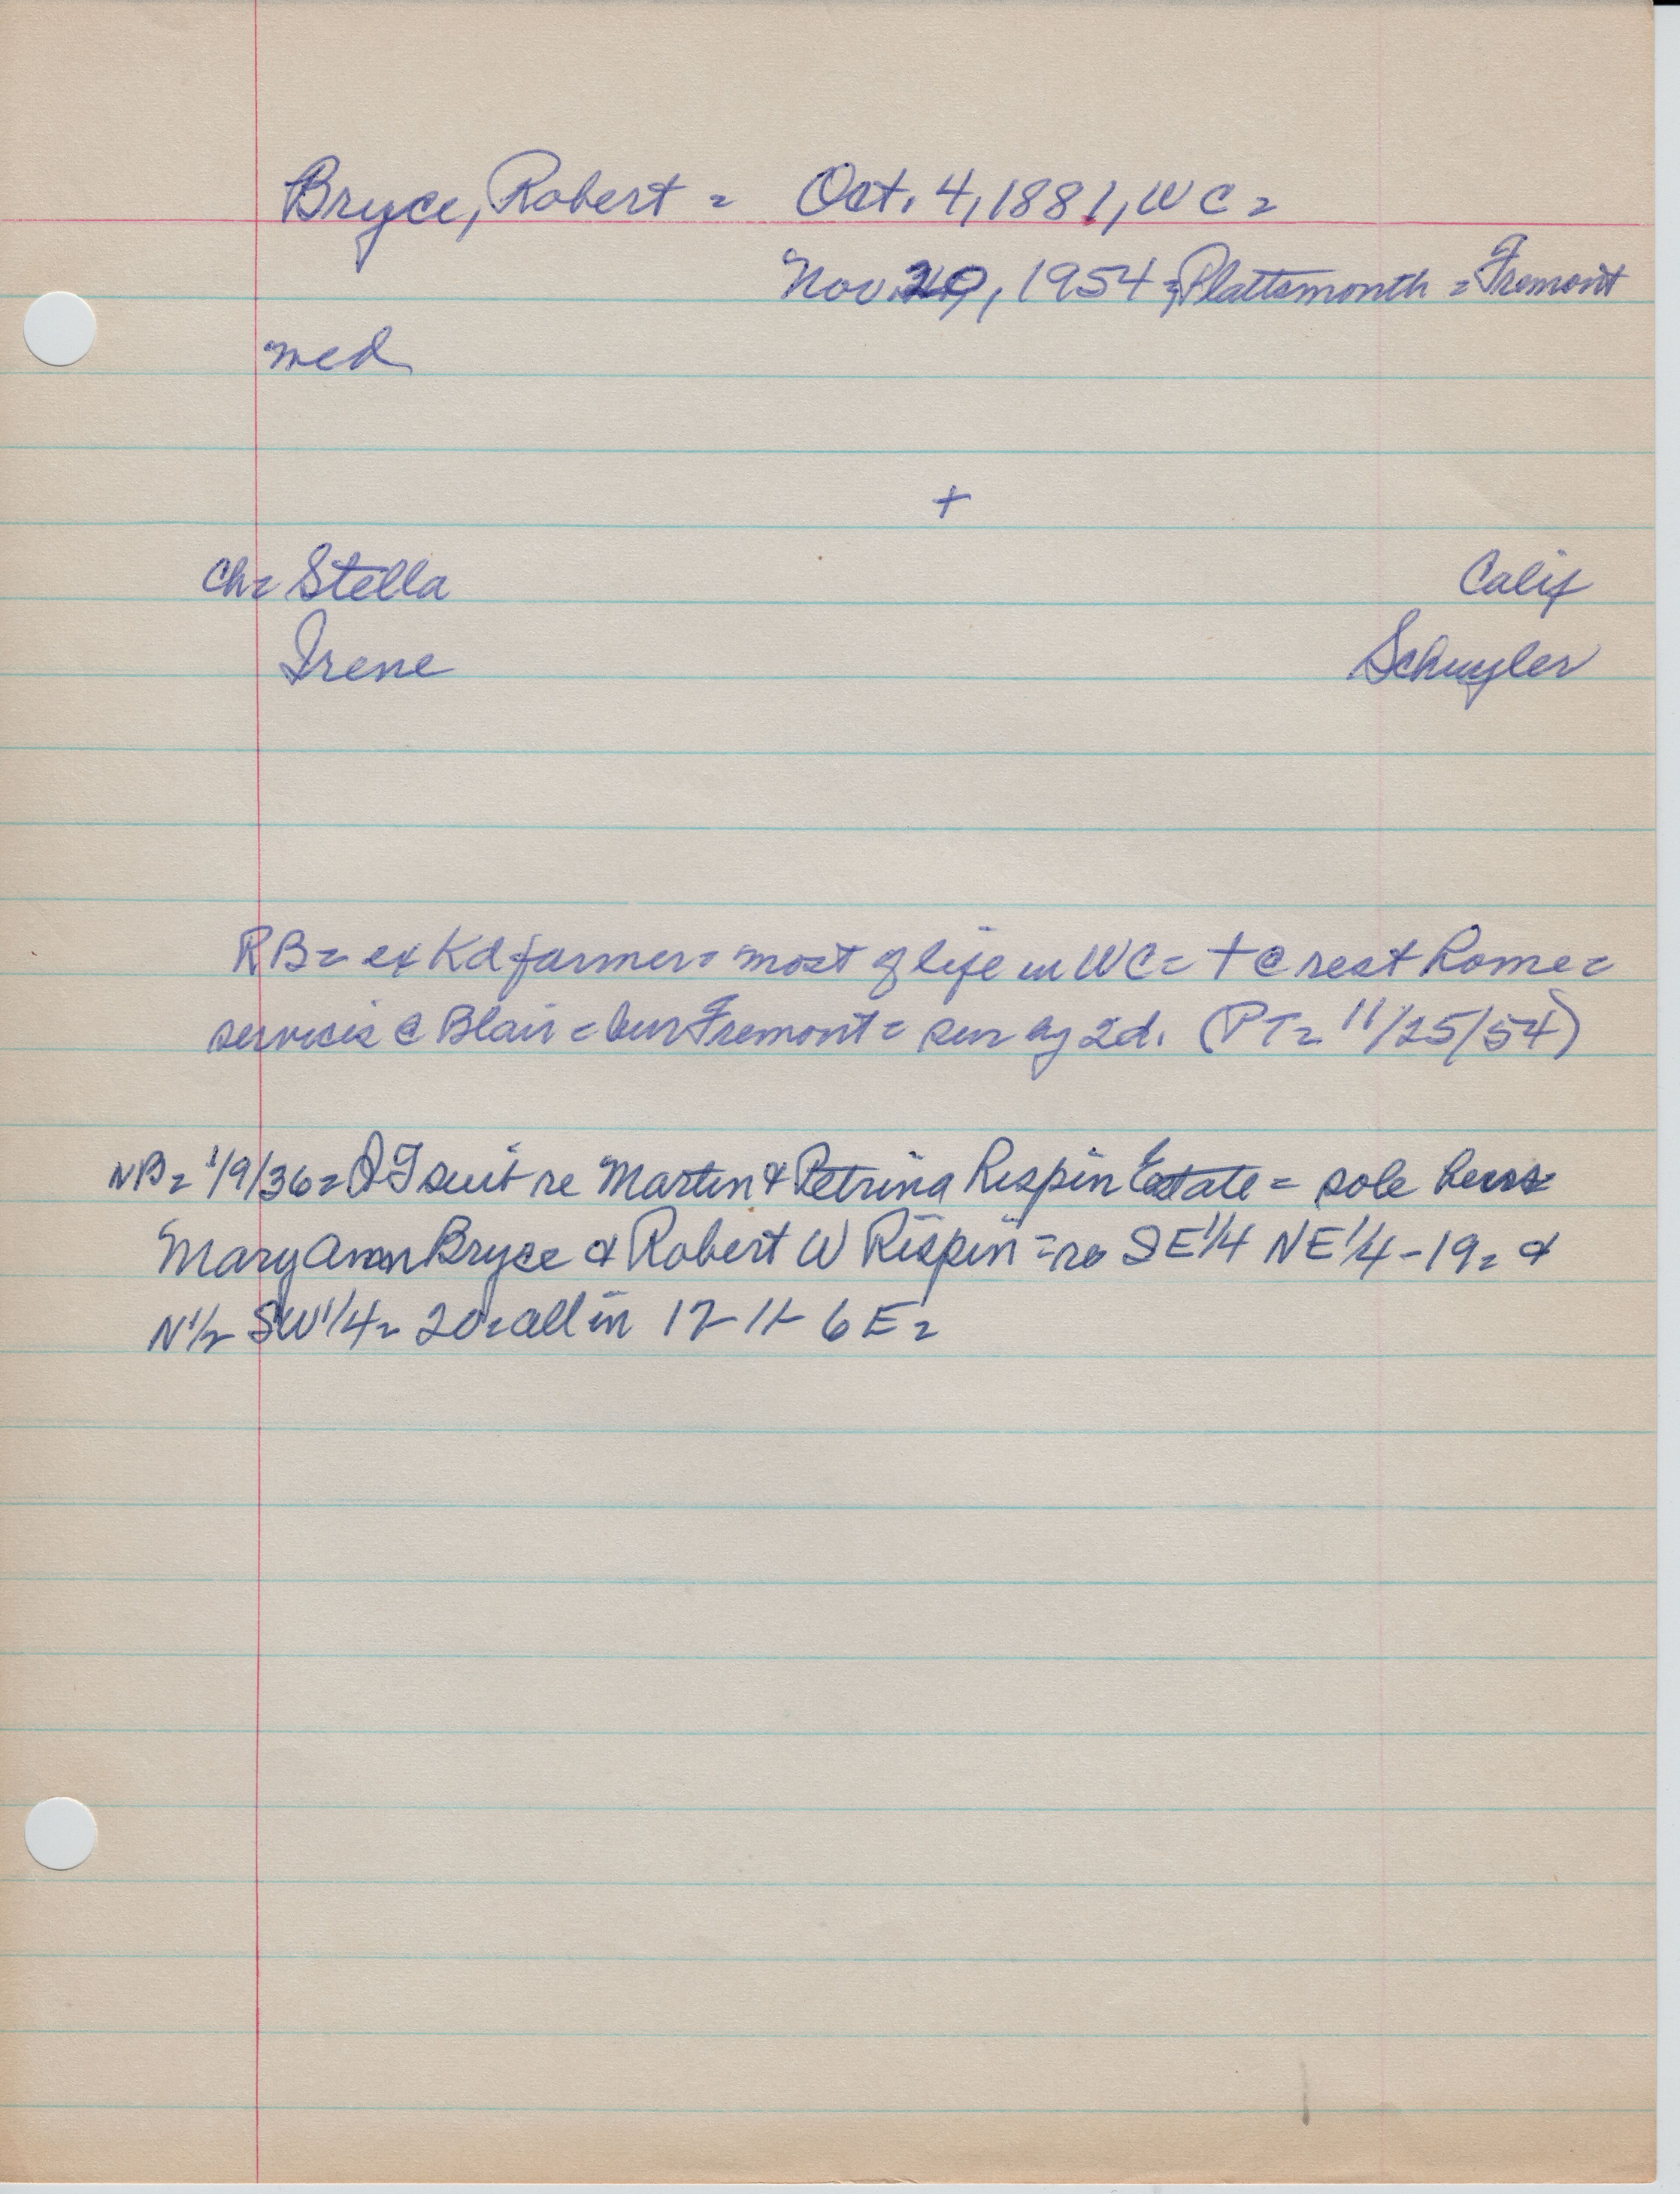 Bryce, Robert = Oct. 4, 1881, WC =
Nov. 20, 1954 = Plattsmonth = Fremont
med
+
Ch = Stella Calif
Irene Schuyler
RB = ex Kd farmer = most of life in WC = + @ rest home =
services @ Blair = bur Fremont = sur by 2d. (PT = 11/25/54)
NB = 1/9/36 = QT suit re Martin & Petrina Rispin Estate = sole heirs
Mary Ann Bryce & Robert W Rispin = re SE 1/4 NE 1/4 - 19 = &
N 1/2 SW 1/4 = 20 = all in 17- 11- 6 E =